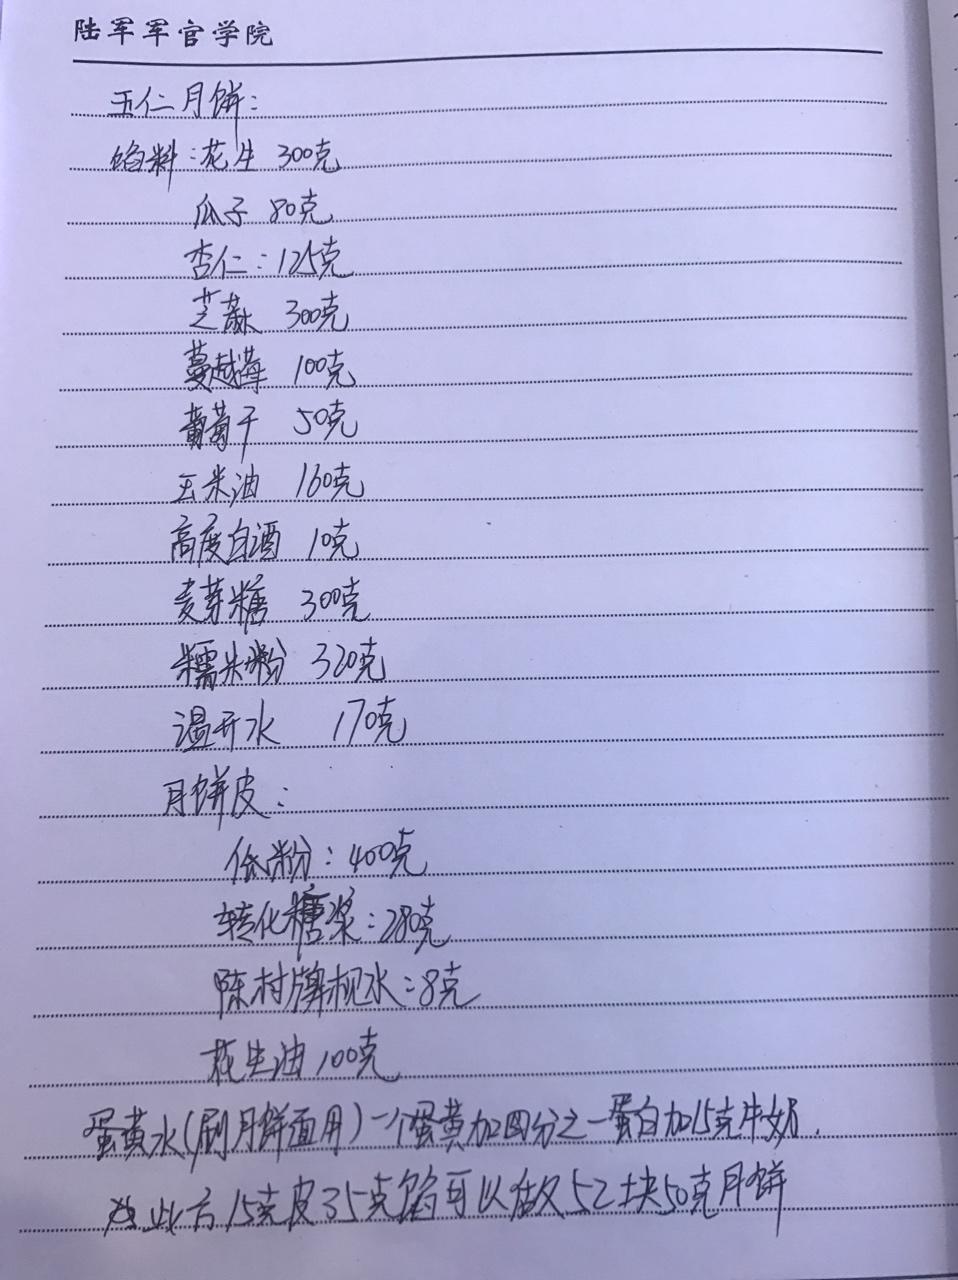 陆军军官学院
五仁月饼：
馅料：花生 300克
瓜子 80克
杏仁：125克
芝麻 300克
蔓越莓 100克
葡萄干 50克
玉米油 160克
高度白酒 10克
麦芽糖 300克
糯米粉 320克
温开水 170克
月饼皮：
低粉：400克
转化糖浆：280克
陈村牌枧水：8克
花生油 100克
蛋黄水（刷月饼面用）一个蛋黄加四分之一蛋白加15克牛奶.
此方15克皮35克馅可以做52块50克月饼